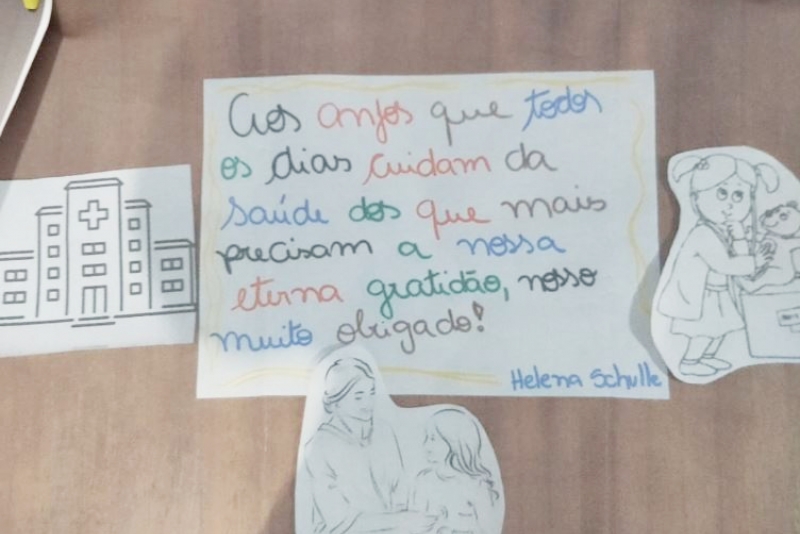 Aos anjos que todos
os dias cuidam da
saúde dos que mais
precisam a nossa
eterna gratidão, nosso
muito obrigado!
Helena Schulle